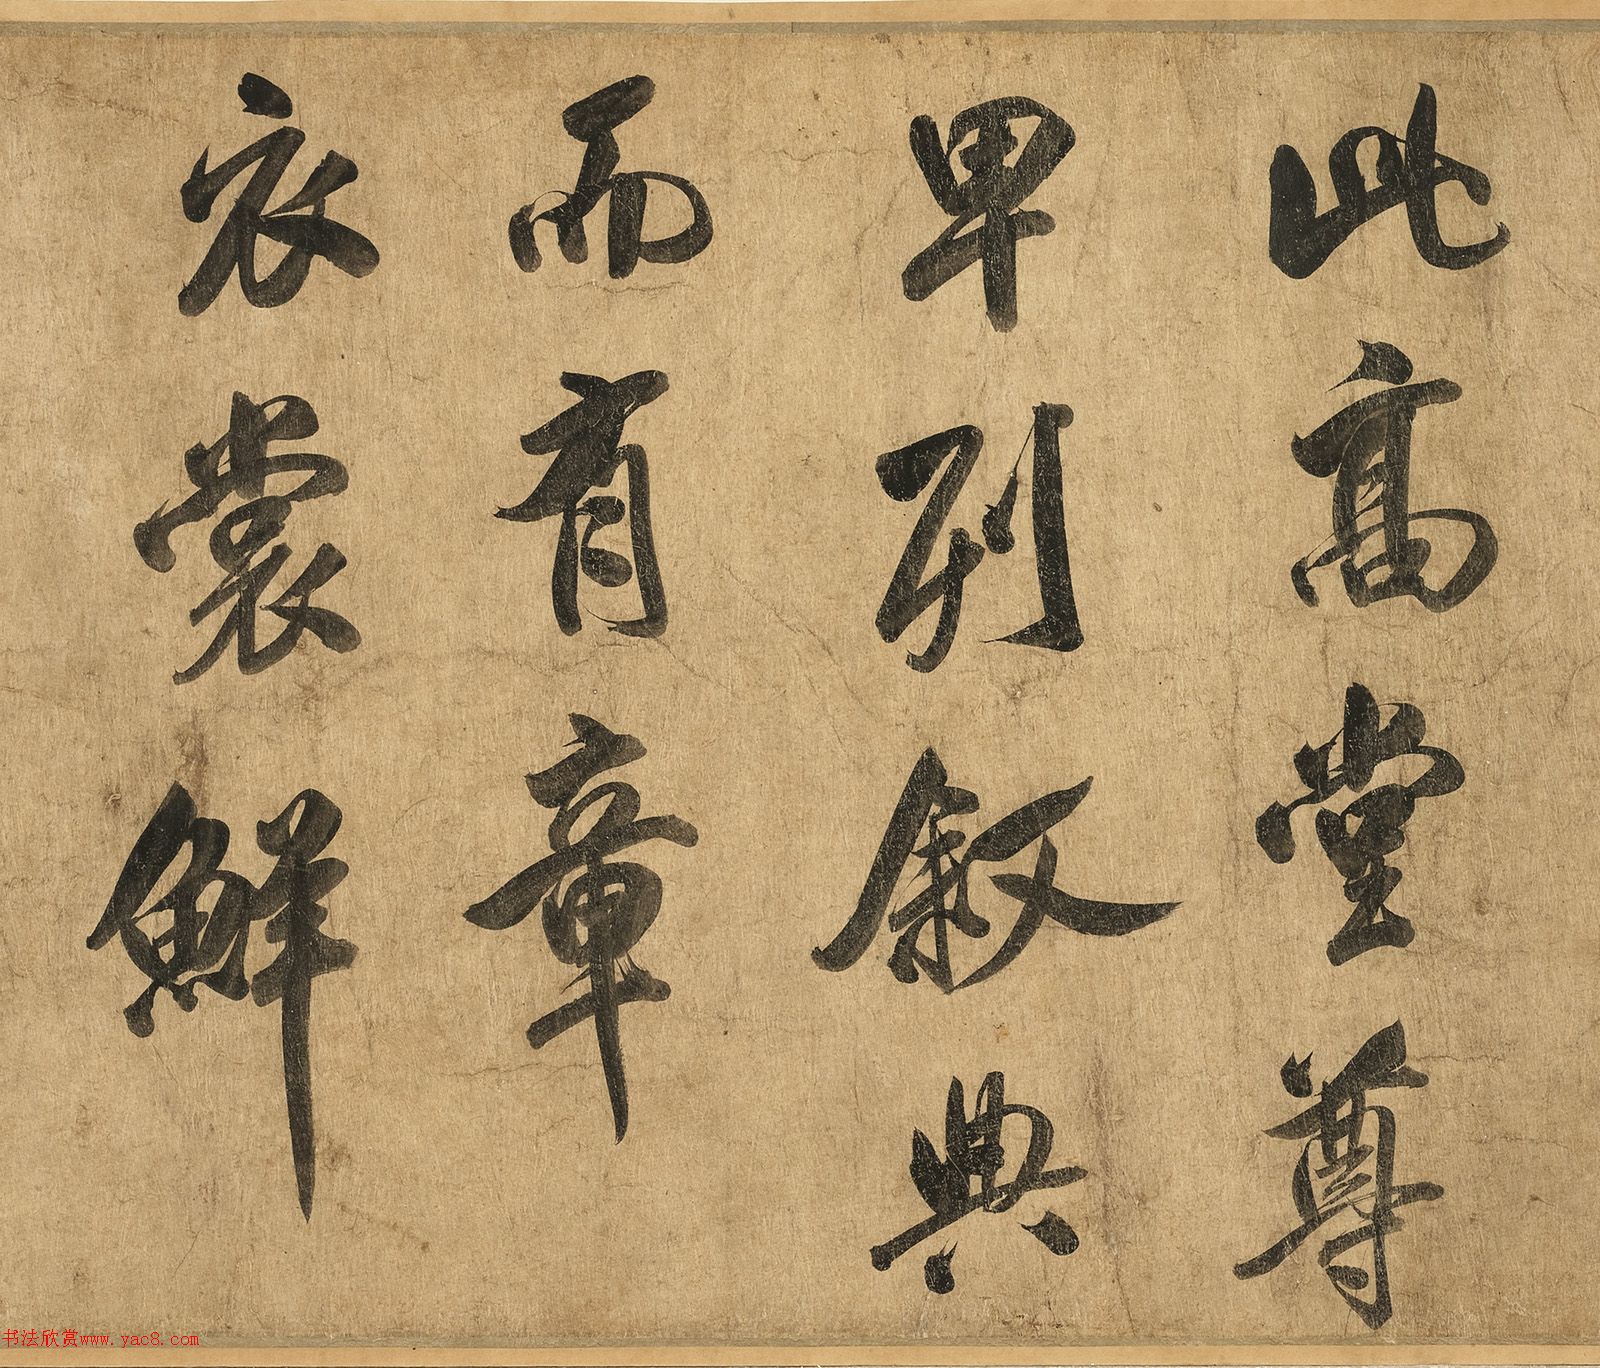 此高堂尊
卑列叙典
而有章
衣裳鲜
书法欣赏www.yac8.com